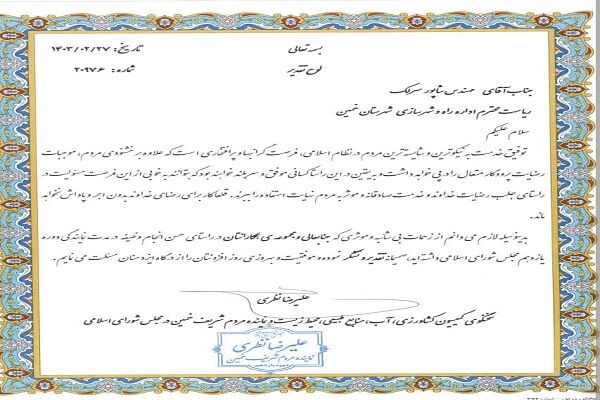 بسمه تعالی
تاریخ: ۱۴۰۳/۰۲/۲۷
لوح تقدیر
شماره: ۲۰۹۷۶
جناب آقای مهندس شاپور سرلک
ریاست محترم اداره راه و شهرسازی شهرستان خمین
سلام علیکم
توفیق خدمت به نیکوترین و شایسته ترین مردم در نظام اسلامی، فرصت گرانبها و پر افتخاری است که علاوه بر خشنودی مردم، موجبات
رضایت پروردگار متعال را در پی خواهد داشت و به یقین در این راستا کسانی موفق و سربلند خواهند بود که بتوانند به خوبی از این فرصت مسئولیت در
راستای جلب رضایت خداوند و خدمت صادقانه و موثر به مردم نهایت استفاده را ببرند. قطعا کار برای رضای خداوند بدون اجر و پاداش نخواهد
ماند.
بدینوسیله لازم می دانم از زحمات بی شائبه و موثری که جنابعالی و مجموعه ی همکارانتان در راستای حسن انجام وظیفه در مدت نمایندگی دوره
یازدهم مجلس شورای اسلامی داشته اید، صمیمانه تقدیر و تشکر نموده و موفقیت و بهروزی روز افزونتان را از درگاه ایزد منان مسئلت می نمایم.
علیرضا نظری
سخنگوی کمیسیون کشاورزی، آب، منابع طبیعی، محیط زیست و نماینده مردم شریف خمین در مجلس شورای اسلامی
علیرضا نظری
نماینده مردم شریف خمین